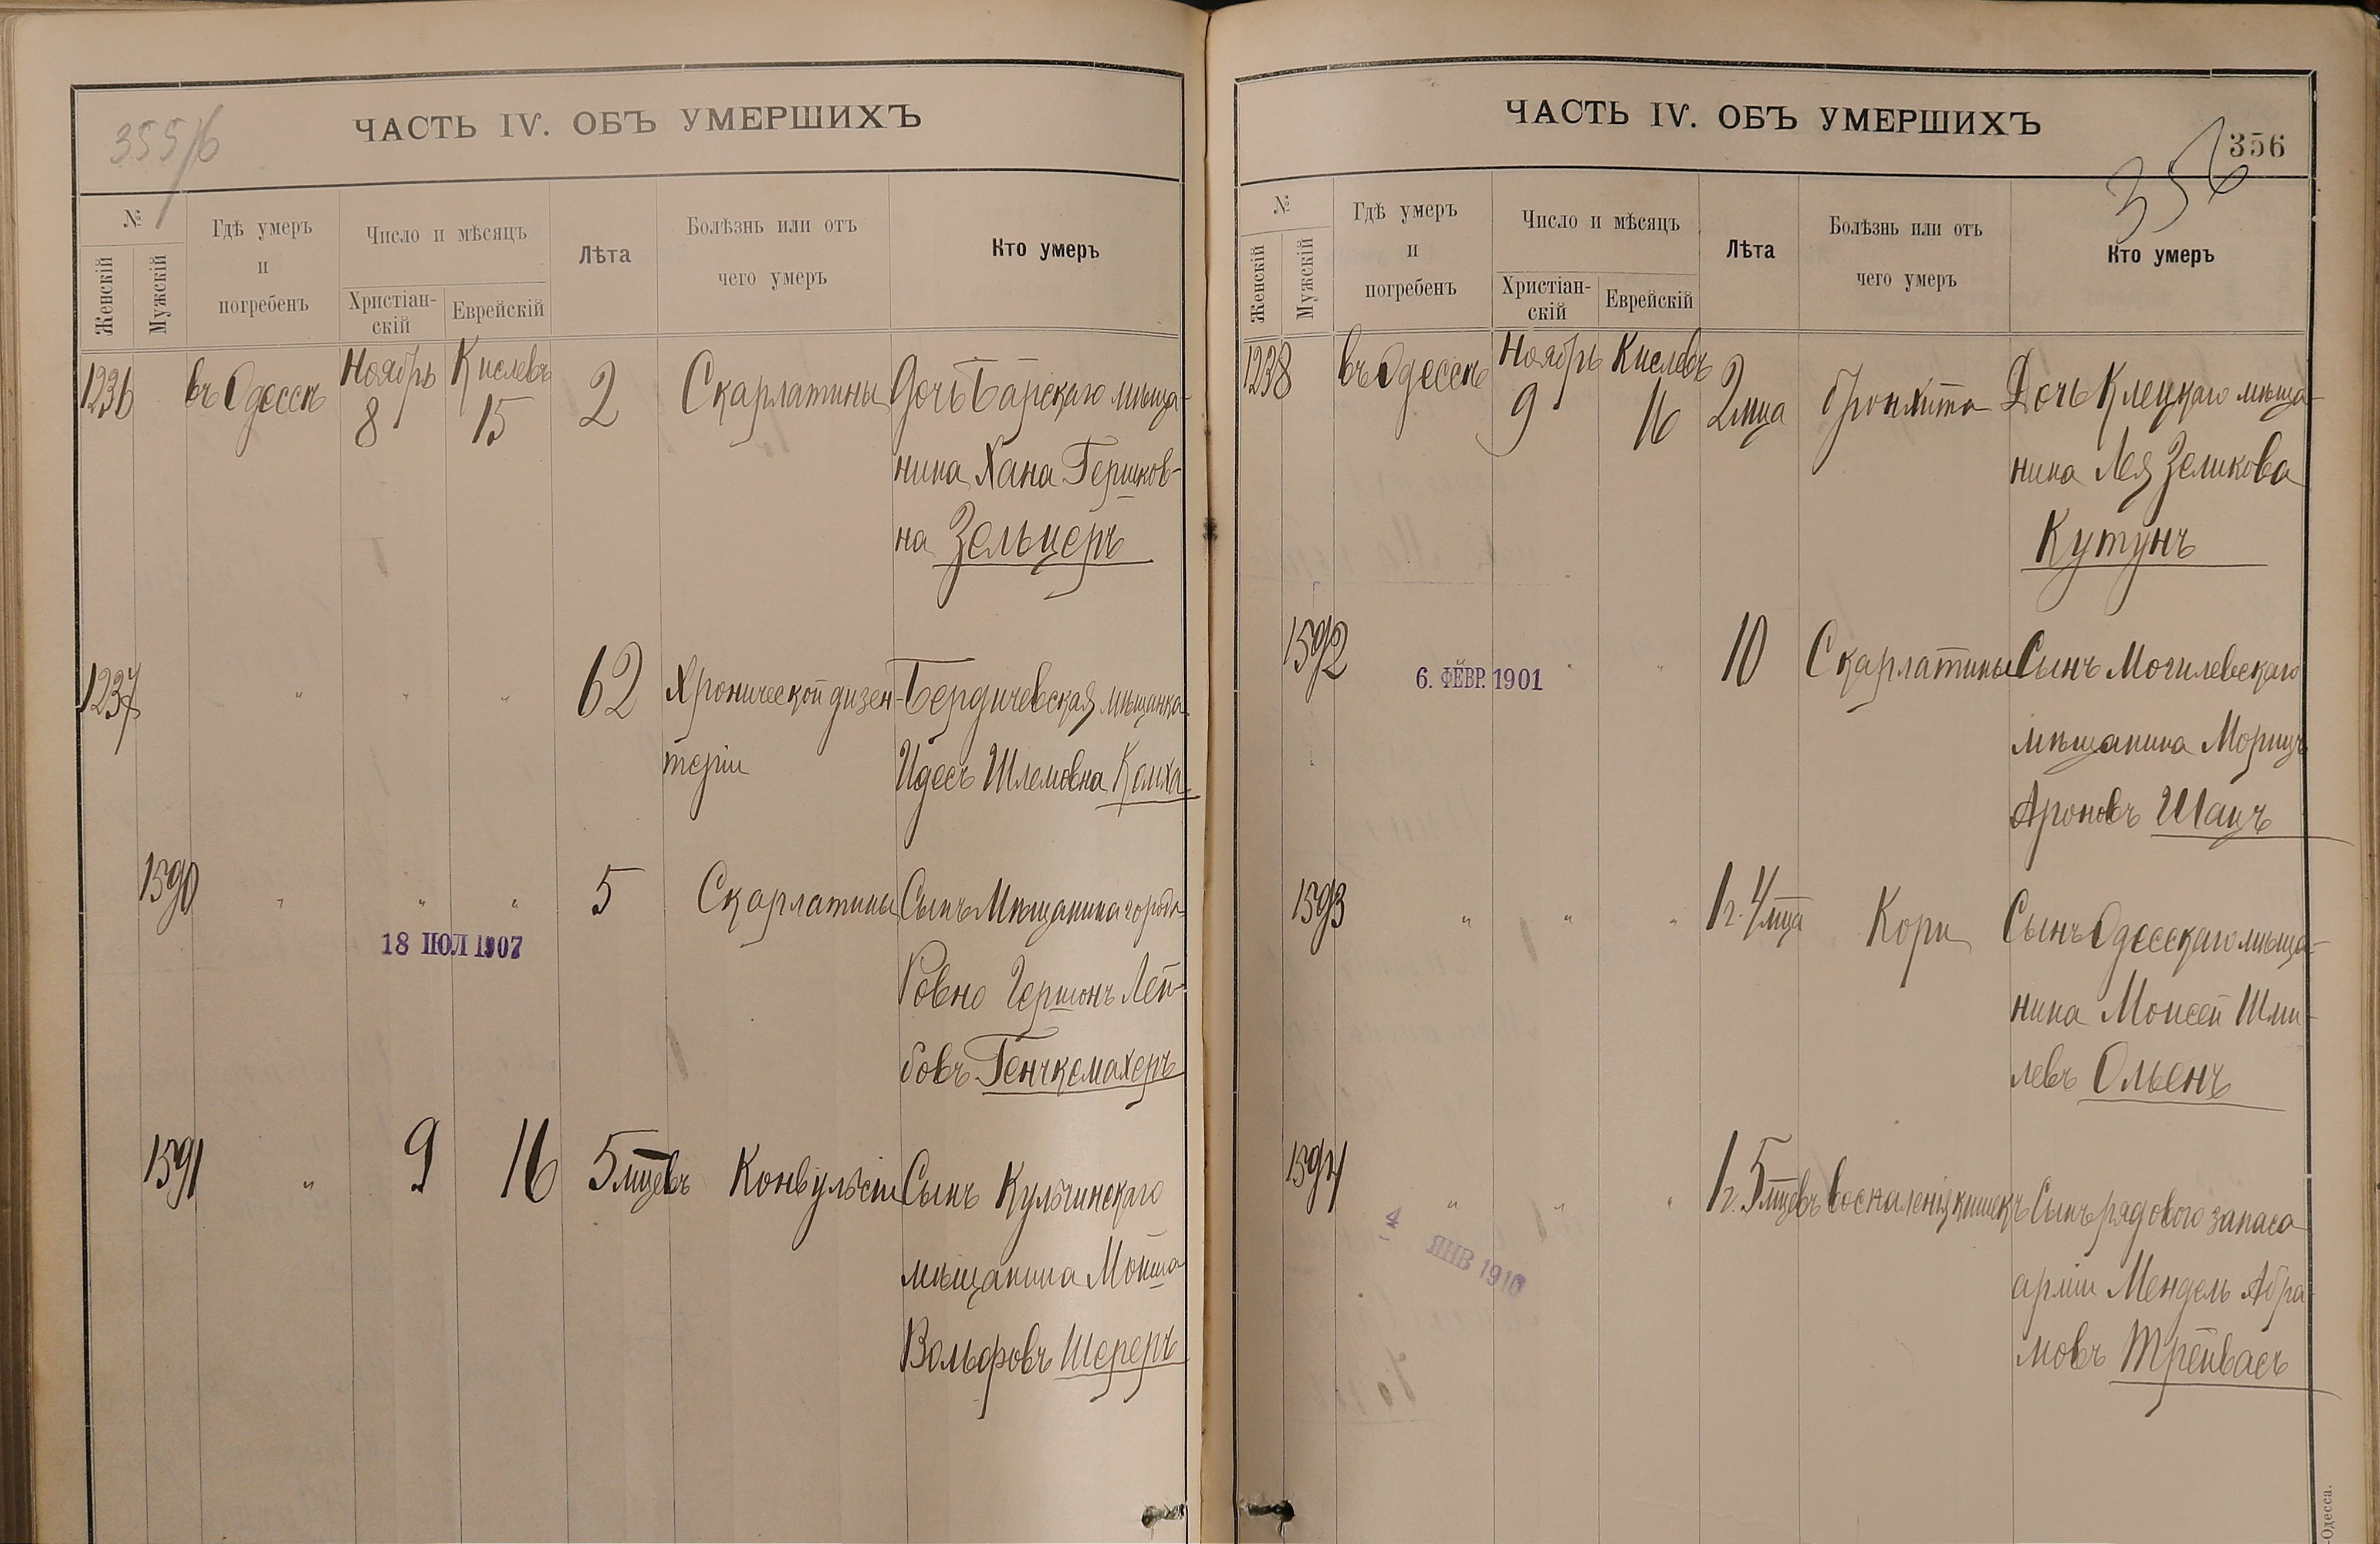 355/6
ЧАСТЬ IV. ОБЪ УМЕРШИХЪ
№
Женскій
Мужскій
Гдѣ умеръ
и
погребенъ
Число и мѣсяцъ
Христіан-
скій
Еврейскій
Лѣта
Болѣзнь или отъ
чего умеръ
Кто умеръ
1236 въ Одессѣ Ноябрь Кислевъ 2 Скарлатины Дочь Барскаго мѣща-
8 15
нина Хана Гершков-
на Зельцеръ
1237 " " " 62 Хронической дизен- Бердичевская мѣщанка
теріи Идесъ Шлемовна
1590 " " " 5 Скарлатины Сынъ Мѣщанина города
18 ІЮЛ 1907
Ровно Гершонъ Лей-
бовъ Генчкемахеръ
1591 " 9 16 5 мцевъ Конвульсіи Сынъ Кульчинскаго
мѣщанина Мойша
Вольфовъ Шереръ
ЧАСТЬ IV. ОБЪ УМЕРШИХЪ
356
356
№
Женскій
Мужскій
Гдѣ умеръ
и
погребенъ
Число и мѣсяцъ
Христіан-
скій
Еврейскій
Лѣта
Болѣзнь или отъ
чего умеръ
Кто умеръ
1238 въ Одессѣ Ноябрь Кислевъ 2 мца бронхита Дочь Клецкаго мѣща-
9 16
нина Лея Зеликова
Кутунъ
1592 " " 10 Скарлатины Сынъ Могилевскаго
6. ФЕВР. 1901
мѣщанина Морицъ
Ароновъ Шацъ
1593 " " " 1 г. 4 мца Кори Сынъ Одесскаго мѣща-
нина Моисей Шми-
левъ Ольенъ
1594 " " " 1 г. 5 мцевъ воспаленія кишекъ Сынъ рядового запаса
4 ЯНВ 1910
арміи Мендель Абра-
мовъ Трейвасъ
-Одесса.